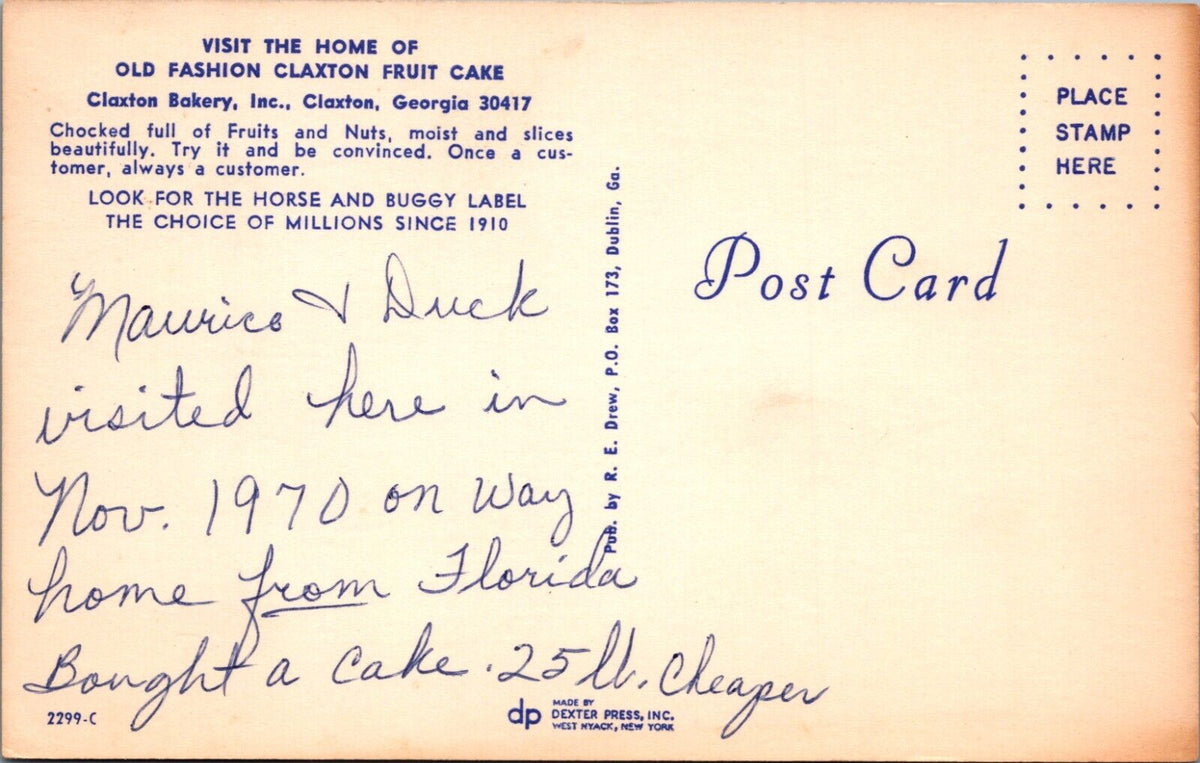 VISIT THE HOME OF
OLD FASHION CLAXTON FRUIT CAKE
Claxton Bakery, Inc., Claxton, Georgia 30417
Chocked full of Fruits and Nuts, moist and slices
beautifully. Try it and be convinced. Once a cus-
tomer, always a customer.
LOOK FOR THE HORSE AND BUGGY LABEL
THE CHOICE OF MILLIONS SINCE 1910
Maurice & Duck
visited here in
Nov. 1970 on way
home from Florida
Bought a cake .25 lb. cheaper
2299-C
dp
MADE BY
DEXTER PRESS, INC.
WEST NYACK, NEW YORK
Pub. by R. E. Drew, P.O. Box 173, Dublin, Ga.
Post Card
PLACE
STAMP
HERE